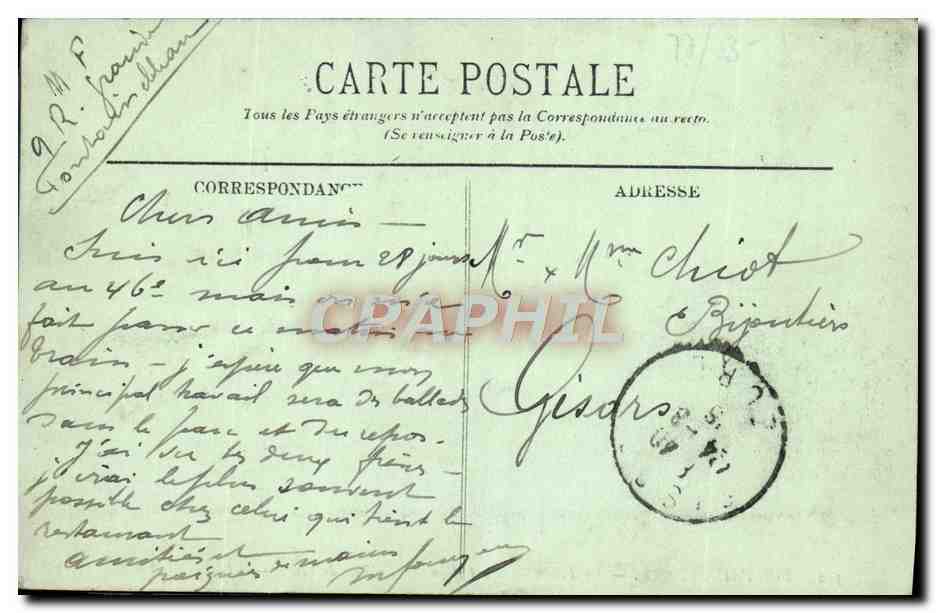 9 R.
Fontainebleau
CARTE POSTALE
Tous les Pays étrangers n'acceptent pas la Correspondance au recto.
(Se renseigner à la Poste).
CORRESPONDANCE
ADRESSE
Chers amis —
Suis ici pour 28 jours
au 46e mais on m'a
fait passer ce matin au
train — j'espère que mon
principal travail sera des ballades
dans le parc et du repos.
J'ai vu tes deux frères —
j'irai le plus souvent
possible chez celui qui tient le
restaurant
amitiés et
poignées de mains
Mr & Mme Chiot
Bijoutiers
Gisors
CPAPHIL